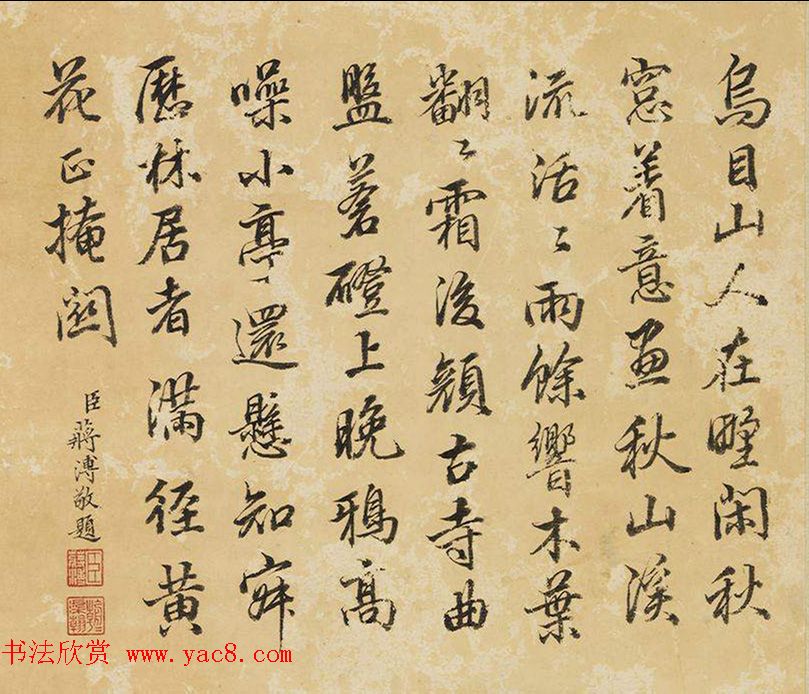 烏目山人在野閑秋
窓着意畫秋山溪
流活〻雨餘響木葉
翻〻霜後顔古寺曲
盤蒼磴上晚鴉高
噪小亭還懸知寂
歷林居者滿徑黃
花正掩關
臣蔣溥敬題
书法欣赏 www.yac8.com